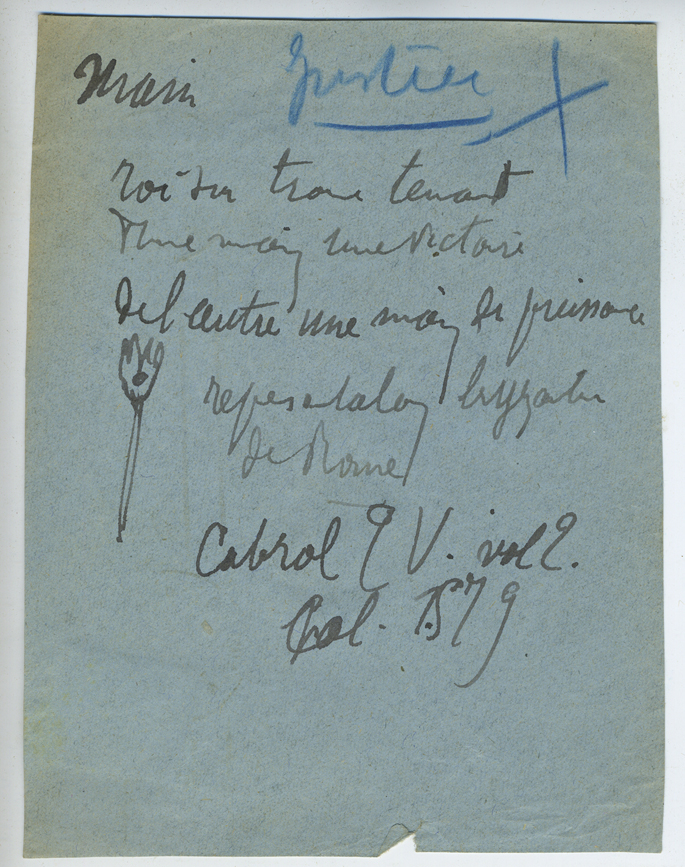 Main Justice
roi sur trone tenant
d'une main une victoire
de l'autre une main de puissance
representation byzantine
de Rome
Cabrol T V. vol 2.
Col. 1579